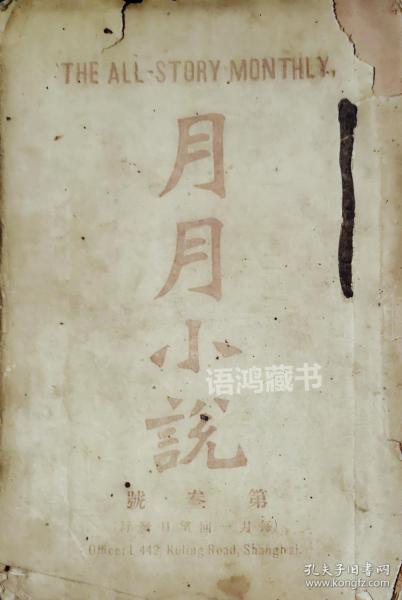 THE ALL-STORY MONTHLY,
月月小說
语鸿藏书
第叁號
(每月一回望日發行)
Officer L 442, Kuling Road, Shanghai.
孔夫子旧书网
www.kongfz.com